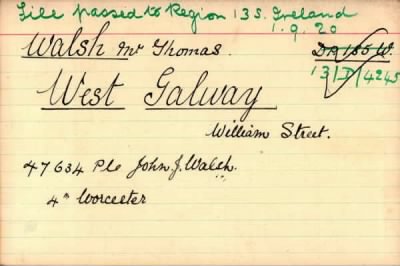 File passed to Region 13 S. Ireland
1.9.20
Walsh Mr Thomas.
13/D/4245
West Galway
William Street.
47634 Pte John J. Walsh.
4th Worcester